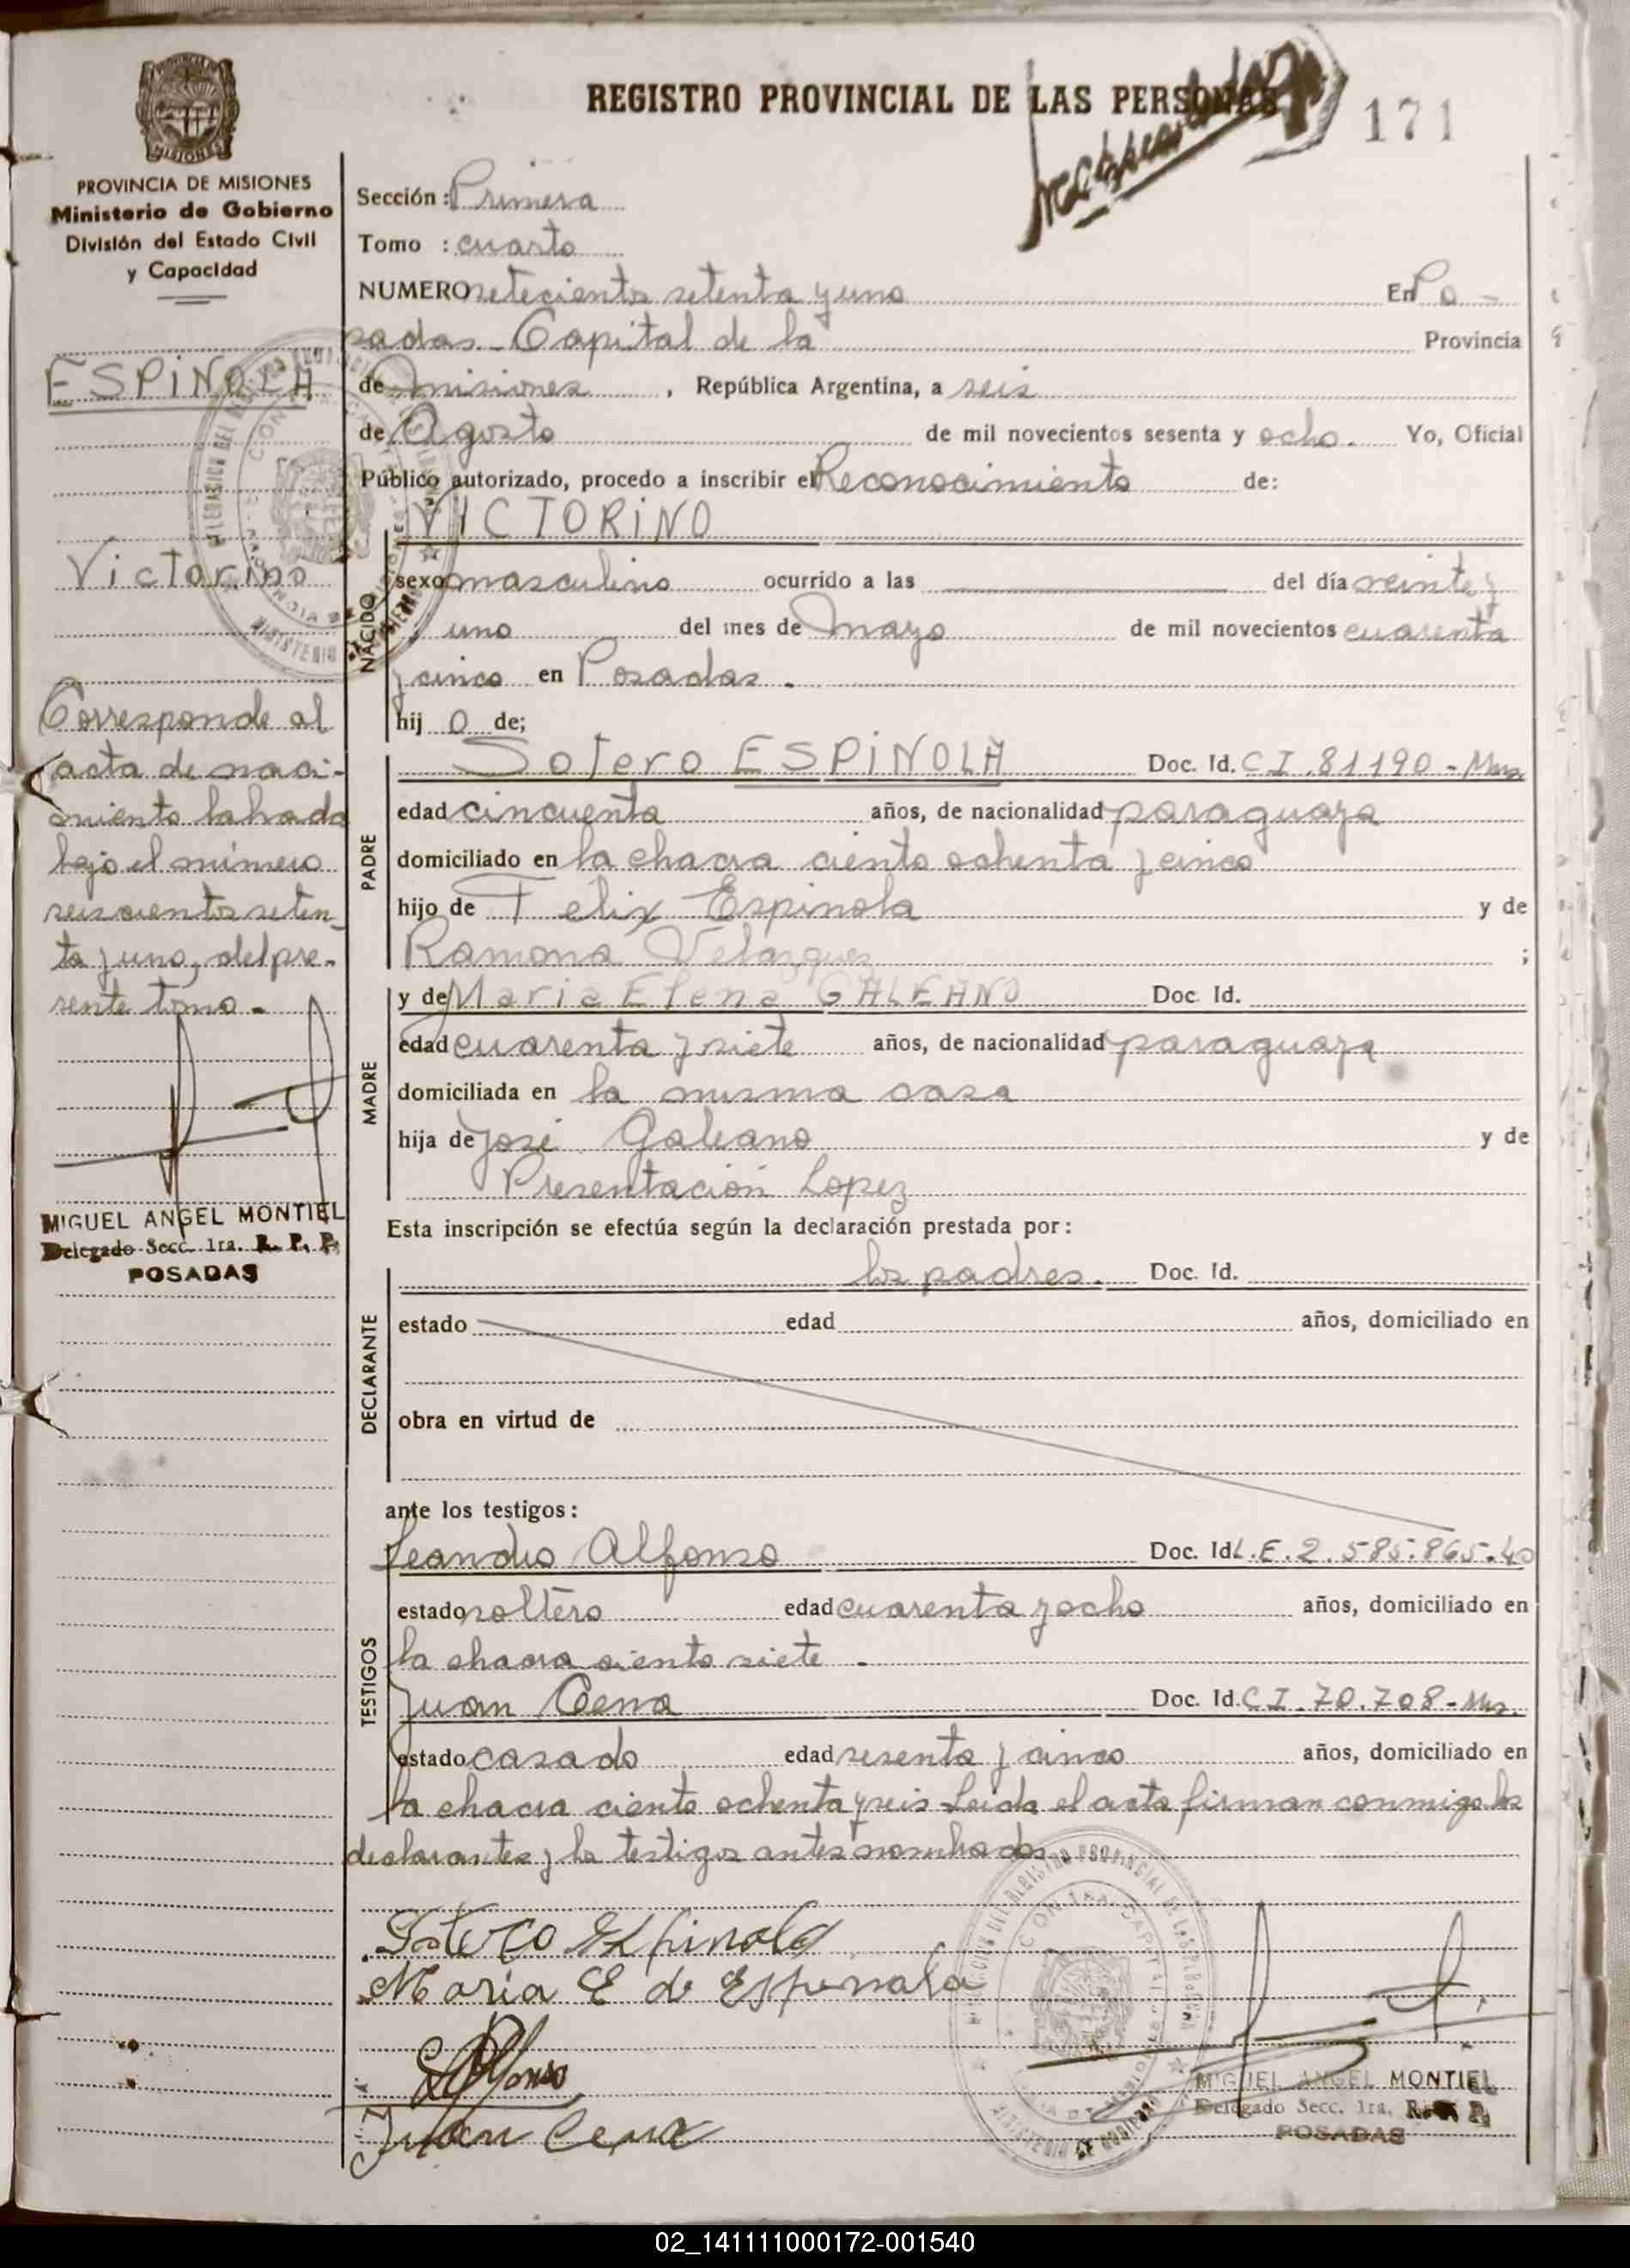 REGISTRO PROVINCIAL DE LAS PERSONAS
171
PROVINCIA DE MISIONES
Ministerio de Gobierno
División del Estado Civil
y Capacidad
ESPINOLA
Victorino
Corresponde al
acta de naci-
miento labrada
bajo el número
seiscientos seten
ta y uno, del pre-
sente tomo -
MIGUEL ANGEL MONTIEL
Delegado Secc. 1ra. R. P. P.
POSADAS
Sección: Primera
Tomo : cuarto
NUMERO setecientos setenta y uno En Po -
sadas. Capital de la Provincia
de Misiones , República Argentina, a seis
de Agosto de mil novecientos sesenta y ocho. Yo, Oficial
Público autorizado, procedo a inscribir el Reconocimiento de:
VICTORINO
NACIDO
sexo masculino ocurrido a las del día veinte y
uno del mes de mayo de mil novecientos cuarenta
y cinco en Posadas.
hij o de;
PADRE
Sotero ESPINOLA Doc. Id. C I . 81190 - Mnes
edad cincuenta años, de nacionalidad paraguaya
domiciliado en la chacra ciento ochenta y cinco
hijo de Félix Espinola y de
Ramona Velazquez ;
MADRE
y de Maria Elena GALEANO Doc. Id.
edad cuarenta y siete años, de nacionalidad paraguaya
domiciliada en la misma casa
hija de José Galeano y de
Presentación Lopez
Esta inscripción se efectúa según la declaración prestada por:
DECLARANTE
los padres. Doc. Id.
estado edad años, domiciliado en
obra en virtud de
ante los testigos:
TESTIGOS
Leandro Alfonso Doc. Id L.E. 2.585.865.
estado soltero edad cuarenta y ocho años, domiciliado en
la chacra ciento siete.
Juan Cena Doc. Id. C I . 70.708 - Mns.
estado casado edad sesenta y cinco años, domiciliado en
la chacra ciento ochenta y seis Leida el acta firman conmigo los
declarantes y los testigos antes nombrados.
Sotero Espinola
Maria E de Espinola
L Alfonso
Juan Cena
MIGUEL ANGEL MONTIEL
Delegado Secc. 1ra. R. P. P.
POSADAS
02_141111000172-001540